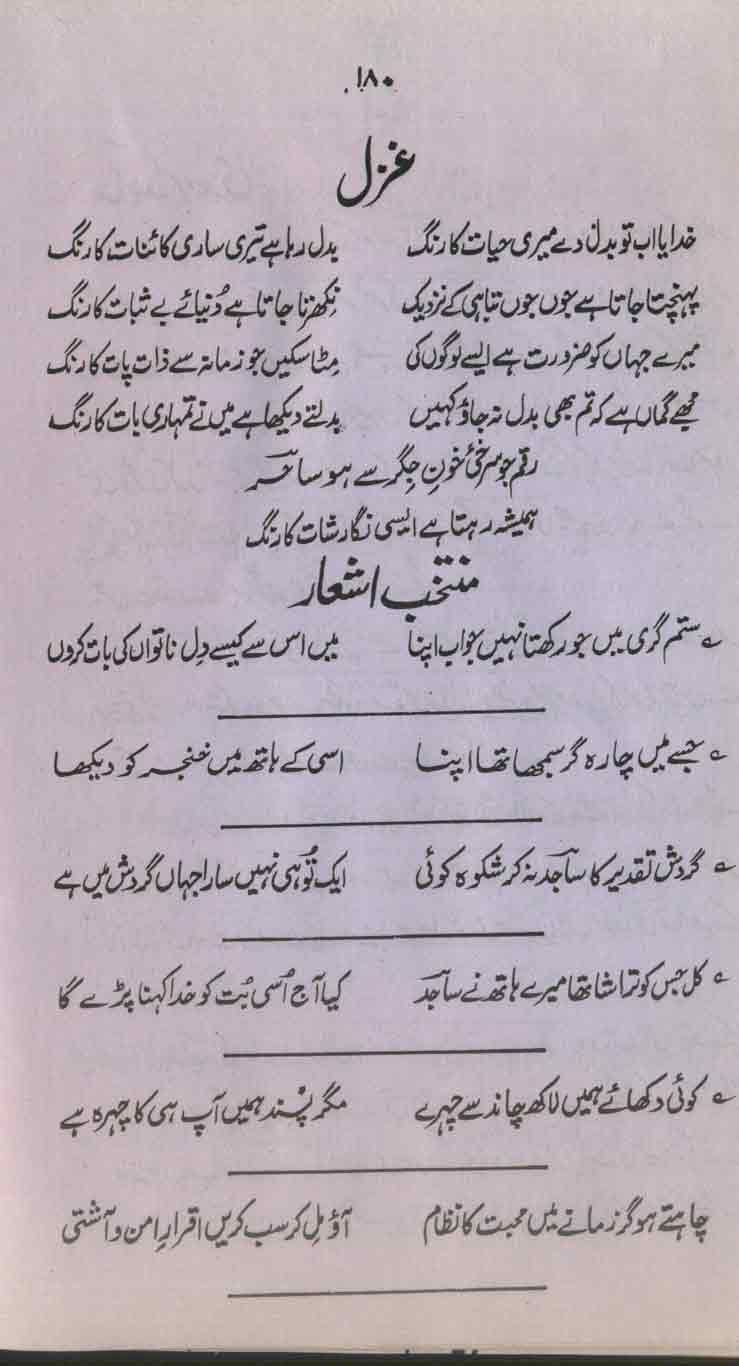 ۱۸۰
غزل
خدایا اب تو بدل دے میری حیات کا رنگ بدل رہا ہے تیری ساری کائنات کا رنگ
پہنچتا جاتا ہے جوں جوں تباہی کے نزدیک نکھرتا جاتا ہے دُنیائے بے ثبات کا رنگ
میرے جہاں کو ضرورت ہے ایسے لوگوں کی مِٹا سکیں جو زمانہ سے ذات پات کا رنگ
مجھے گماں ہے کہ تم بھی بدل نہ جاؤ کہیں بدلتے دیکھا ہے میں نے تمہاری بات کا رنگ
رقم جو سرخئ خونِ جگر سے ہو ساحر
ہمیشہ رہتا ہے ایسی نگارشات کا رنگ
منتخب اشعار
ے ستم گری میں جو رکھتا نہیں جواب اپنا میں اس سے کیسے دِل ناتواں کی بات کروں
ے جسے میں چارہ گر سمجھا تھا اپنا اسی کے ہاتھ میں خنجر کو دیکھا
ے گردش تقدیر کا ساجد نہ کر شکوہ کوئی ایک تُو ہی نہیں سارا جہاں گردش میں ہے
ے کل جس کو تراشا تھا میرے ہاتھ نے ساجد کیا آج اُسی بُت کو خدا کہنا پڑے گا
ے کوئی دکھائے ہمیں لاکھ چاند سے چہرے مگر پسند ہمیں آپ ہی کا چہرہ ہے
چاہتے ہو گر زمانے میں محبت کا نظام آؤ مِل کر سب کریں اقرارِ امن و آشتی